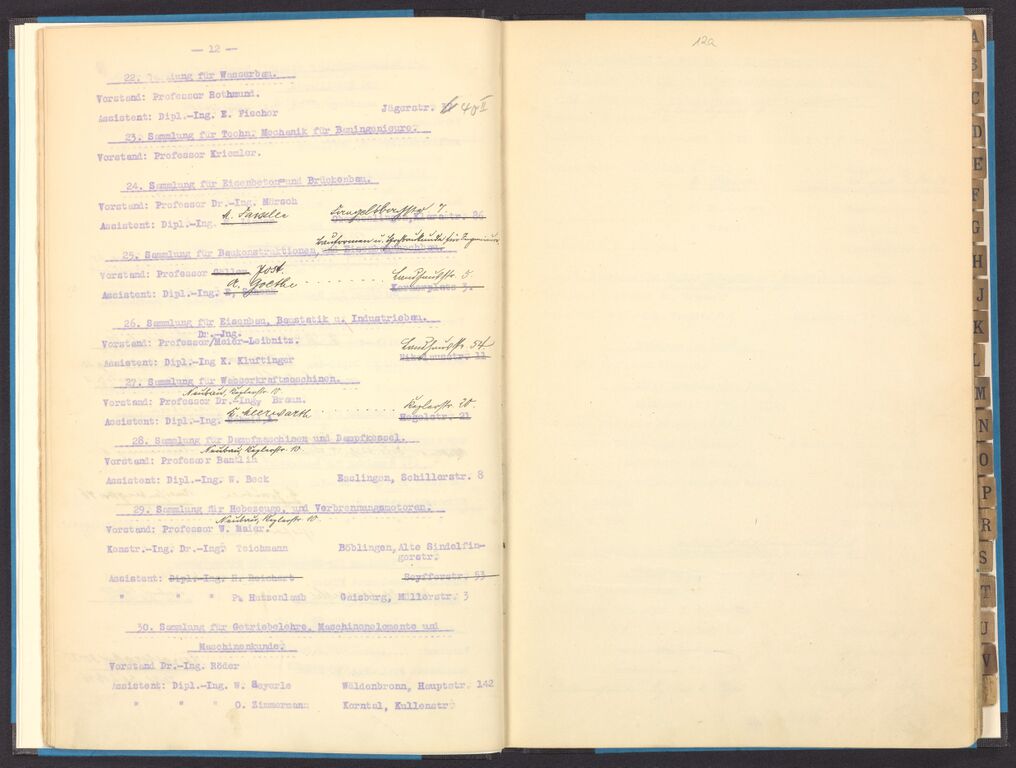 — 12 —
12a
22. Sammlung für Wasserbau.
Vorstand: Professor Rothmund.
Assistent: Dipl.-Ing. E. Fischer Jägerstr. 40 II
23. Sammlung für Techn. Mechanik für Bauingenieure.
Vorstand: Professor Kriemler.
24. Sammlung für Eisenbeton und Brückenbau.
Vorstand: Professor Dr.-Ing. Mörsch
Assistent: Dipl.-Ing. Klarastr. 26
Bauformen u. für Ingenieure
25. Sammlung für Baukonstruktionen,
Vorstand: Professor Jost.
Assistent: Dipl.-Ing. A. Goethe Landhausstr. 5
Kernerplatz 3.
26. Sammlung für Eisenbau, Baustatik u. Industriebau.
Dr.-Jng.
Vorstand: Professor/Maier-Leibnitz. Landhausstr. 54
Assistent: Dipl.-Ing K. Kluftinger Nikolausstr. 11
27. Sammlung für Wasserkraftmaschinen.
Neubau, Keplerstr. 10
Vorstand: Professor Dr.-Ing. Braun. Keplerstr. 20
E. Meerwarth
Assistent: Dipl.-Ing. Hegelstr. 21
28. Sammlung für Dampfmaschinen und Dampfkessel.
Neubau, Keplerstr. 10
Vorstand: Professor Bantlin
Assistent: Dipl.-Ing. W. Beck Esslingen, Schillerstr. 8
29. Sammlung für Hebezeuge, und Verbrennungsmotoren.
Neubau, Keplerstr. 10
Vorstand: Professor W. Maier.
Konstr.-Ing. Dr.-Ing. Teichmann Böblingen, Alte Sindelfin-
gerstr.
Assistent: Dipl.-Ing. H. Reichert Seyfferstr. 53
" " " P. Hutzenlaub Gaisburg, Müllerstr. 3
30. Sammlung für Getriebelehre, Maschinenelemente und
Maschinenkunde.
Vorstand Dr.-Ing. Röder
Assistent: Dipl.-Ing. W. Beyerle Wäldenbronn, Hauptstr. 142
" " " O. Zimmermann Korntal, Kullenstr.
A
B
C
D
E
F
G
H
J
K
L
M
N
O
P
R
S
T
U
V